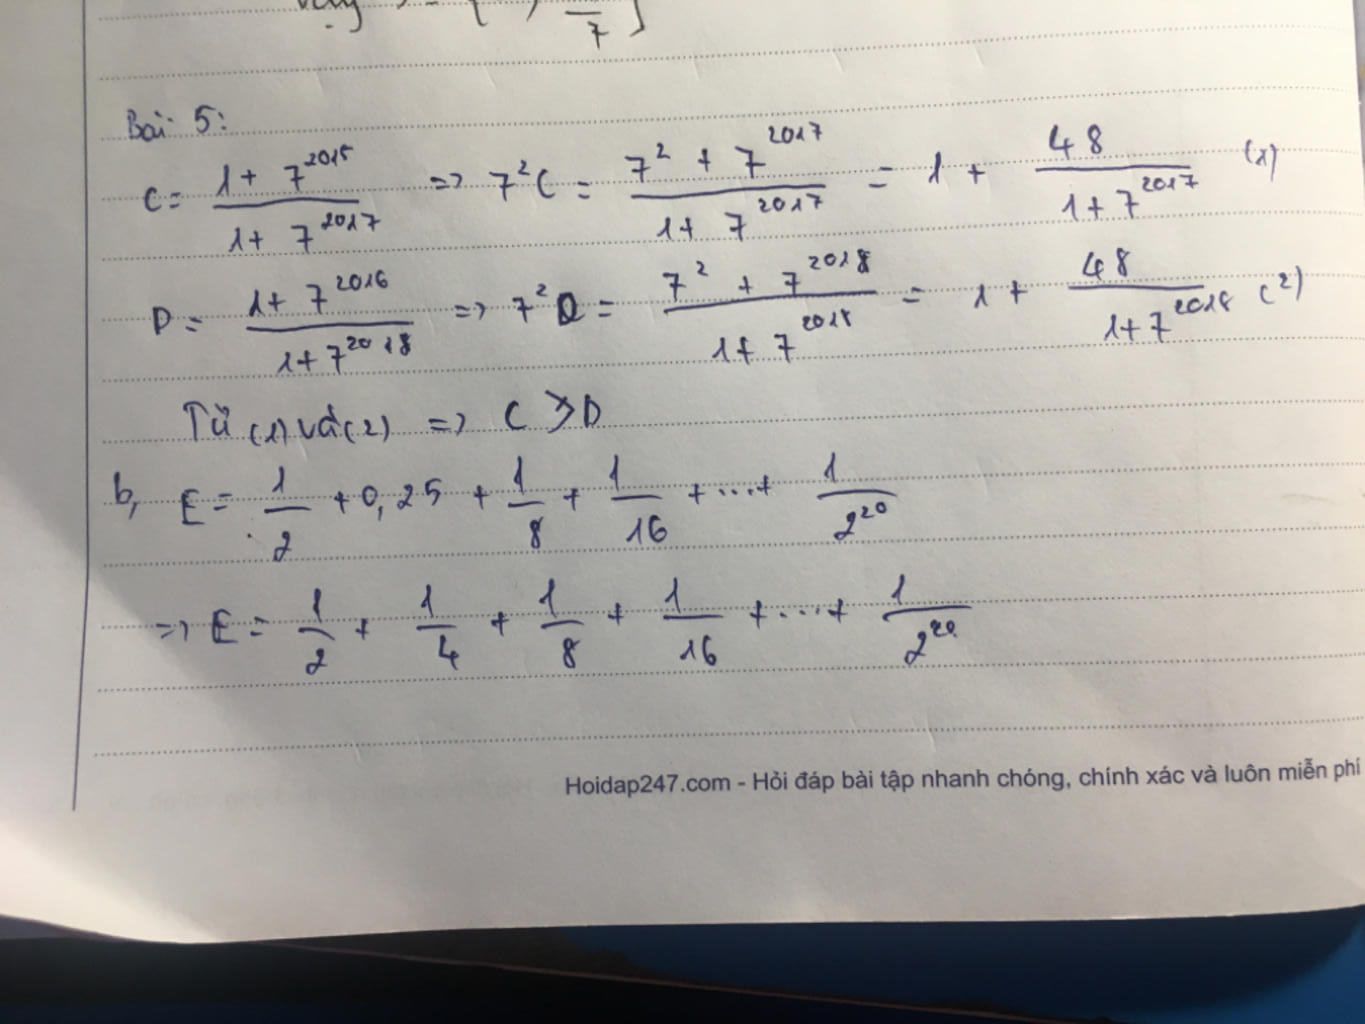 7
Bài 5:
C = \frac{1 + 7^{2015}}{1 + 7^{2017}} => 7^2 C = \frac{7^2 + 7^{2017}}{1 + 7^{2017}} = 1 + \frac{48}{1 + 7^{2017}} (1)
D = \frac{1 + 7^{2016}}{1 + 7^{2018}} => 7^2 D = \frac{7^2 + 7^{2018}}{1 + 7^{2018}} = 1 + \frac{48}{1 + 7^{2018}} (2)
Từ (1) và (2) => C > D
b, E = \frac{1}{2} + 0,25 + \frac{1}{8} + \frac{1}{16} + ... + \frac{1}{2^{20}}
=> E = \frac{1}{2} + \frac{1}{4} + \frac{1}{8} + \frac{1}{16} + ... + \frac{1}{2^{20}}
Hoidap247.com - Hỏi đáp bài tập nhanh chóng, chính xác và luôn miễn phí